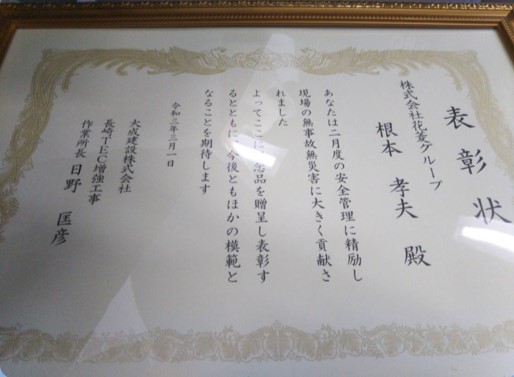 表彰状
株式会社花菱グループ
根本 孝夫 殿
あなたは二月度の安全管理に精励し
現場の無事故無災害に大きく貢献さ
れました
よってここに記念品を贈呈し表彰す
るとともに 今後ともほかの模範と
なることを期待します
令和三年三月一日
大成建設株式会社
長崎TEC増強工事
作業所長 日野 匡彦